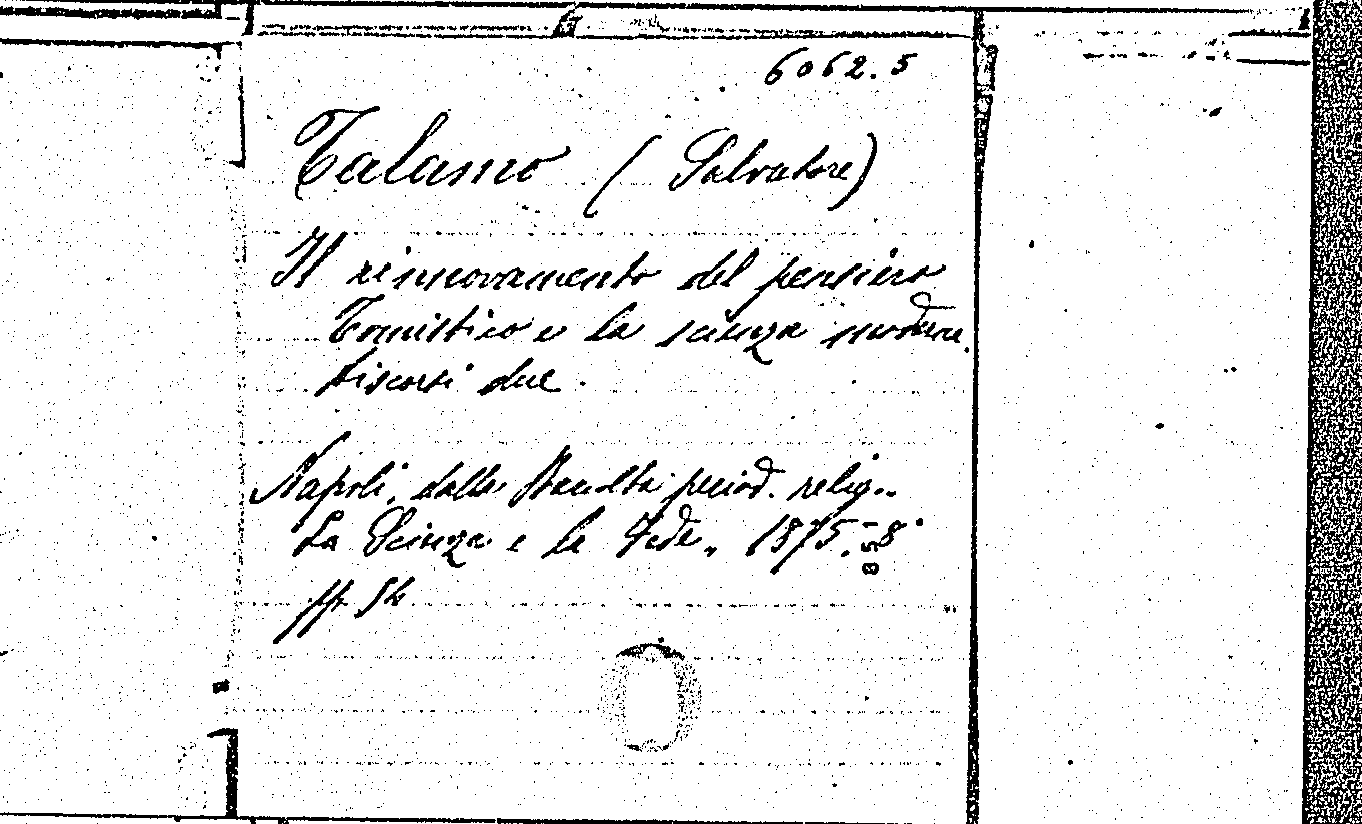 6062.5
Talamo (Salvatore)
Il rinnovamento del pensiero
Tomistico e la scienza moderna.
Discorsi due.
Napoli, dalla Raccolta period. relig.
La Scienza e la Fede, 1875. 8°
pp.